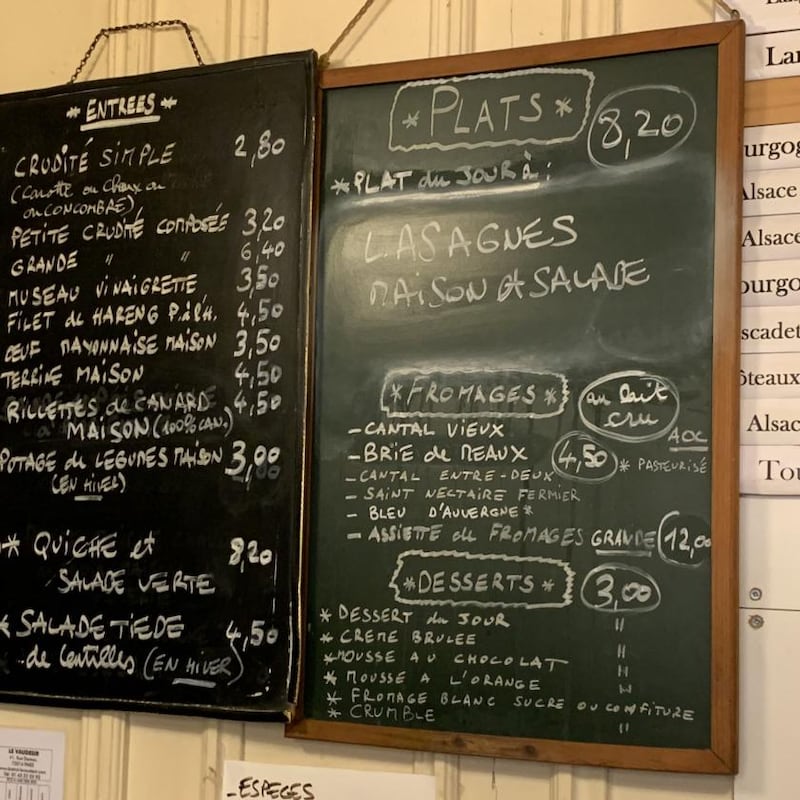 * ENTREES *
CRUDITÉ SIMPLE 2,80
(Carotte ou Choux ou
ou CONCOMBRE)
PETITE CRUDITÉ COMPOSÉE 3,20
GRANDE " " 6,40
MUSEAU VINAIGRETTE 3,50
FILET de HARENG P. à l'H. 4,50
ŒUF MAYONNAISE MAISON 3,50
TERRINE MAISON 4,50
RILLETTES de CANARD 4,50
MAISON (100% CAN.)
POTAGE de LEGUMES MAISON 3,00
(EN HIVER)
* QUICHE et 8,20
SALADE VERTE
* SALADE TIEDE 4,50
de lentilles (EN HIVER)
* PLATS * 8,20
* PLAT du JOUR à :
LASAGNES
MAISON et SALADE
* FROMAGES * au lait
cru
- CANTAL VIEUX AOC
- BRIE de MEAUX 4,50 * PASTEURISÉ
- CANTAL ENTRE-DEUX
- SAINT NECTAIRE FERMIER
- BLEU D'AUVERGNE *
- ASSIETTE de FROMAGES GRANDE 12,00
* DESSERTS * 3,00
* DESSERT du JOUR "
* CREME BRULEE "
* MOUSSE AU CHOCOLAT "
* MOUSSE A L'ORANGE "
* FROMAGE BLANC SUCRE OU CONFITURE
* CRUMBLE "
Lar
urgog
Alsace
Alsace
ourgo
scadet
ôteaux
Alsac
Tou
- ESPECES